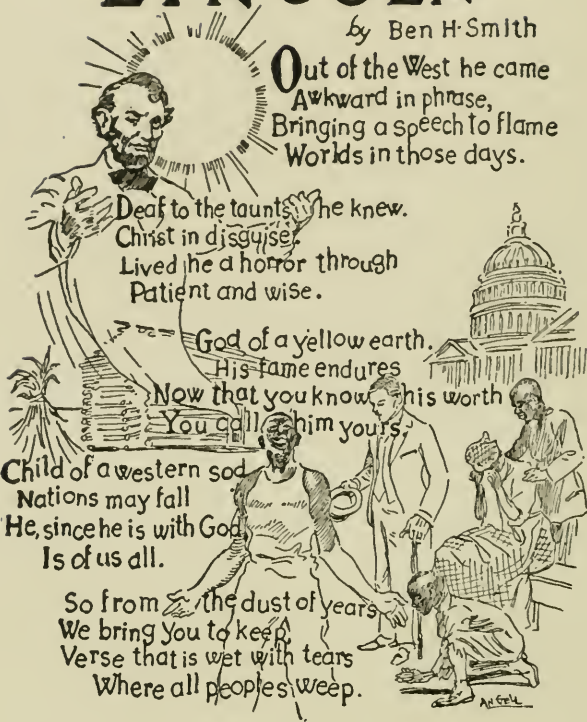 LINCOLN
by Ben H. Smith
Out of the West he came
Awkward in phrase,
Bringing a speech to flame
Worlds in those days.
Deaf to the taunts he knew.
Christ in disguise.
Lived he a horror through
Patient and wise.
God of a yellow earth.
His fame endures
Now that you know his worth
You call him yours.
Child of a western sod
Nations may fall
He, since he is with God
Is of us all.
So from the dust of years
We bring you to keep,
Verse that is wet with tears
Where all peoples weep.
ANGELL